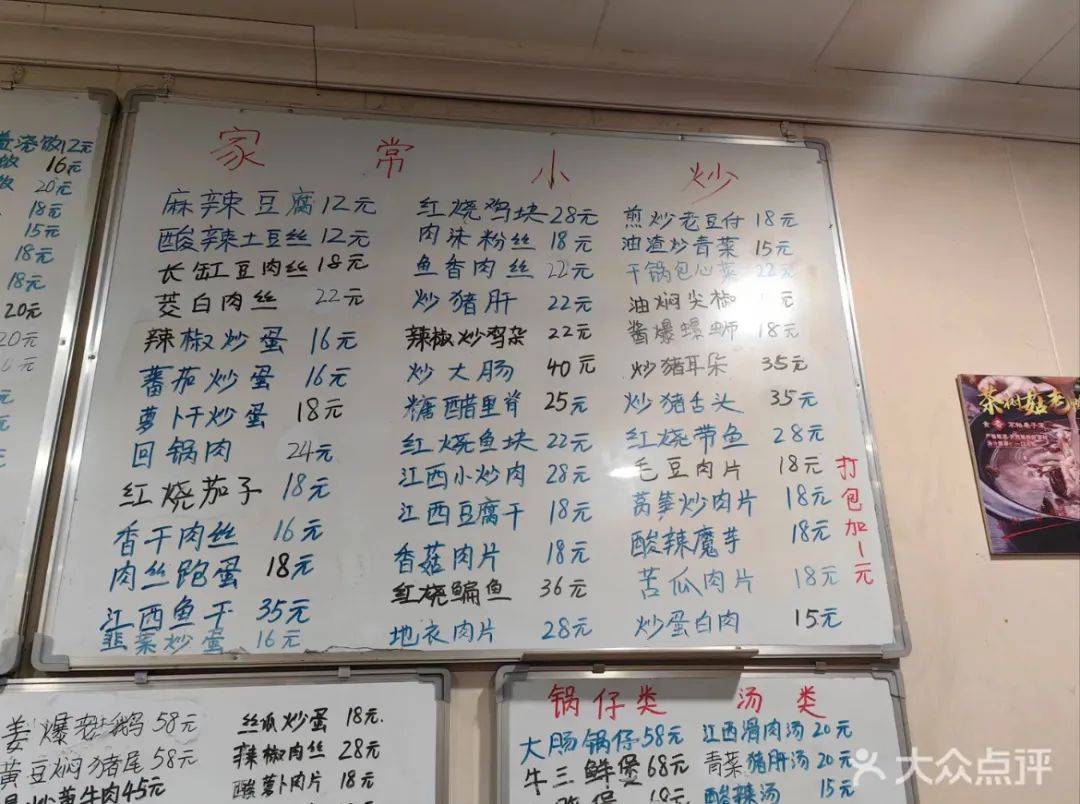 家常小炒
麻辣豆腐12元
酸辣土豆丝12元
长缸豆肉丝18元
茭白肉丝 22元
辣椒炒蛋 16元
蕃茄炒蛋 16元
萝卜干炒蛋 18元
回锅肉 24元
红烧茄子 18元
香干肉丝 16元
肉丝跑蛋 18元
江西鱼干 35元
韭菜炒蛋 16元
红烧鸡块28元
肉沫粉丝 18元
鱼香肉丝 22元
炒猪肝 22元
辣椒炒鸡杂 22元
炒大肠 40元
糖醋里脊 25元
红烧鱼块 22元
江西小炒肉 28元
江西豆腐干 18元
香菇肉片 18元
红烧鳊鱼 36元
地衣肉片 28元
煎炒老豆付 18元
油渣炒青菜 15元
干锅包心菜 22元
油焖尖椒 元
酱爆螺蛳 18元
炒猪耳朵 35元
炒猪舌头 35元
红烧带鱼 28元
毛豆肉片 18元
莴笋炒肉片 18元
酸辣魔芋 18元
苦瓜肉片 18元
炒蛋白肉 15元
打包加1元
12元
16元
20元
18元
15元
18元
18元
20元
20元
6元
姜爆老鹅 58元
黄豆焖猪尾 58元
炒萝牛肉45元
丝瓜炒蛋 18元.
辣椒肉丝 28元
酸萝卜肉片 18元
锅仔类
大肠锅仔58元
牛三鲜煲 68元
煲
汤类
江西滑肉汤 20元
青菜猪肝汤 20元
酸辣汤 15元
大众点评